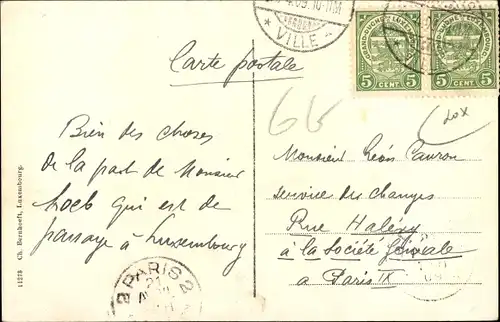 4.09.10-11M
VILLE
GRAND-DUCHÉ DE LUXEMBOURG
5 5
CENT.
5 5
CENT.
Carte postale
66
20x
Bien des choses
de la part de Monsieur
Loeb qui est de
passage à Luxembourg
Monsieur Léon Cauron
service des changes
Rue Halévy
à la Société Générale
à Paris IX
PARIS
11279 Ch. Bernhoeft, Luxembourg.